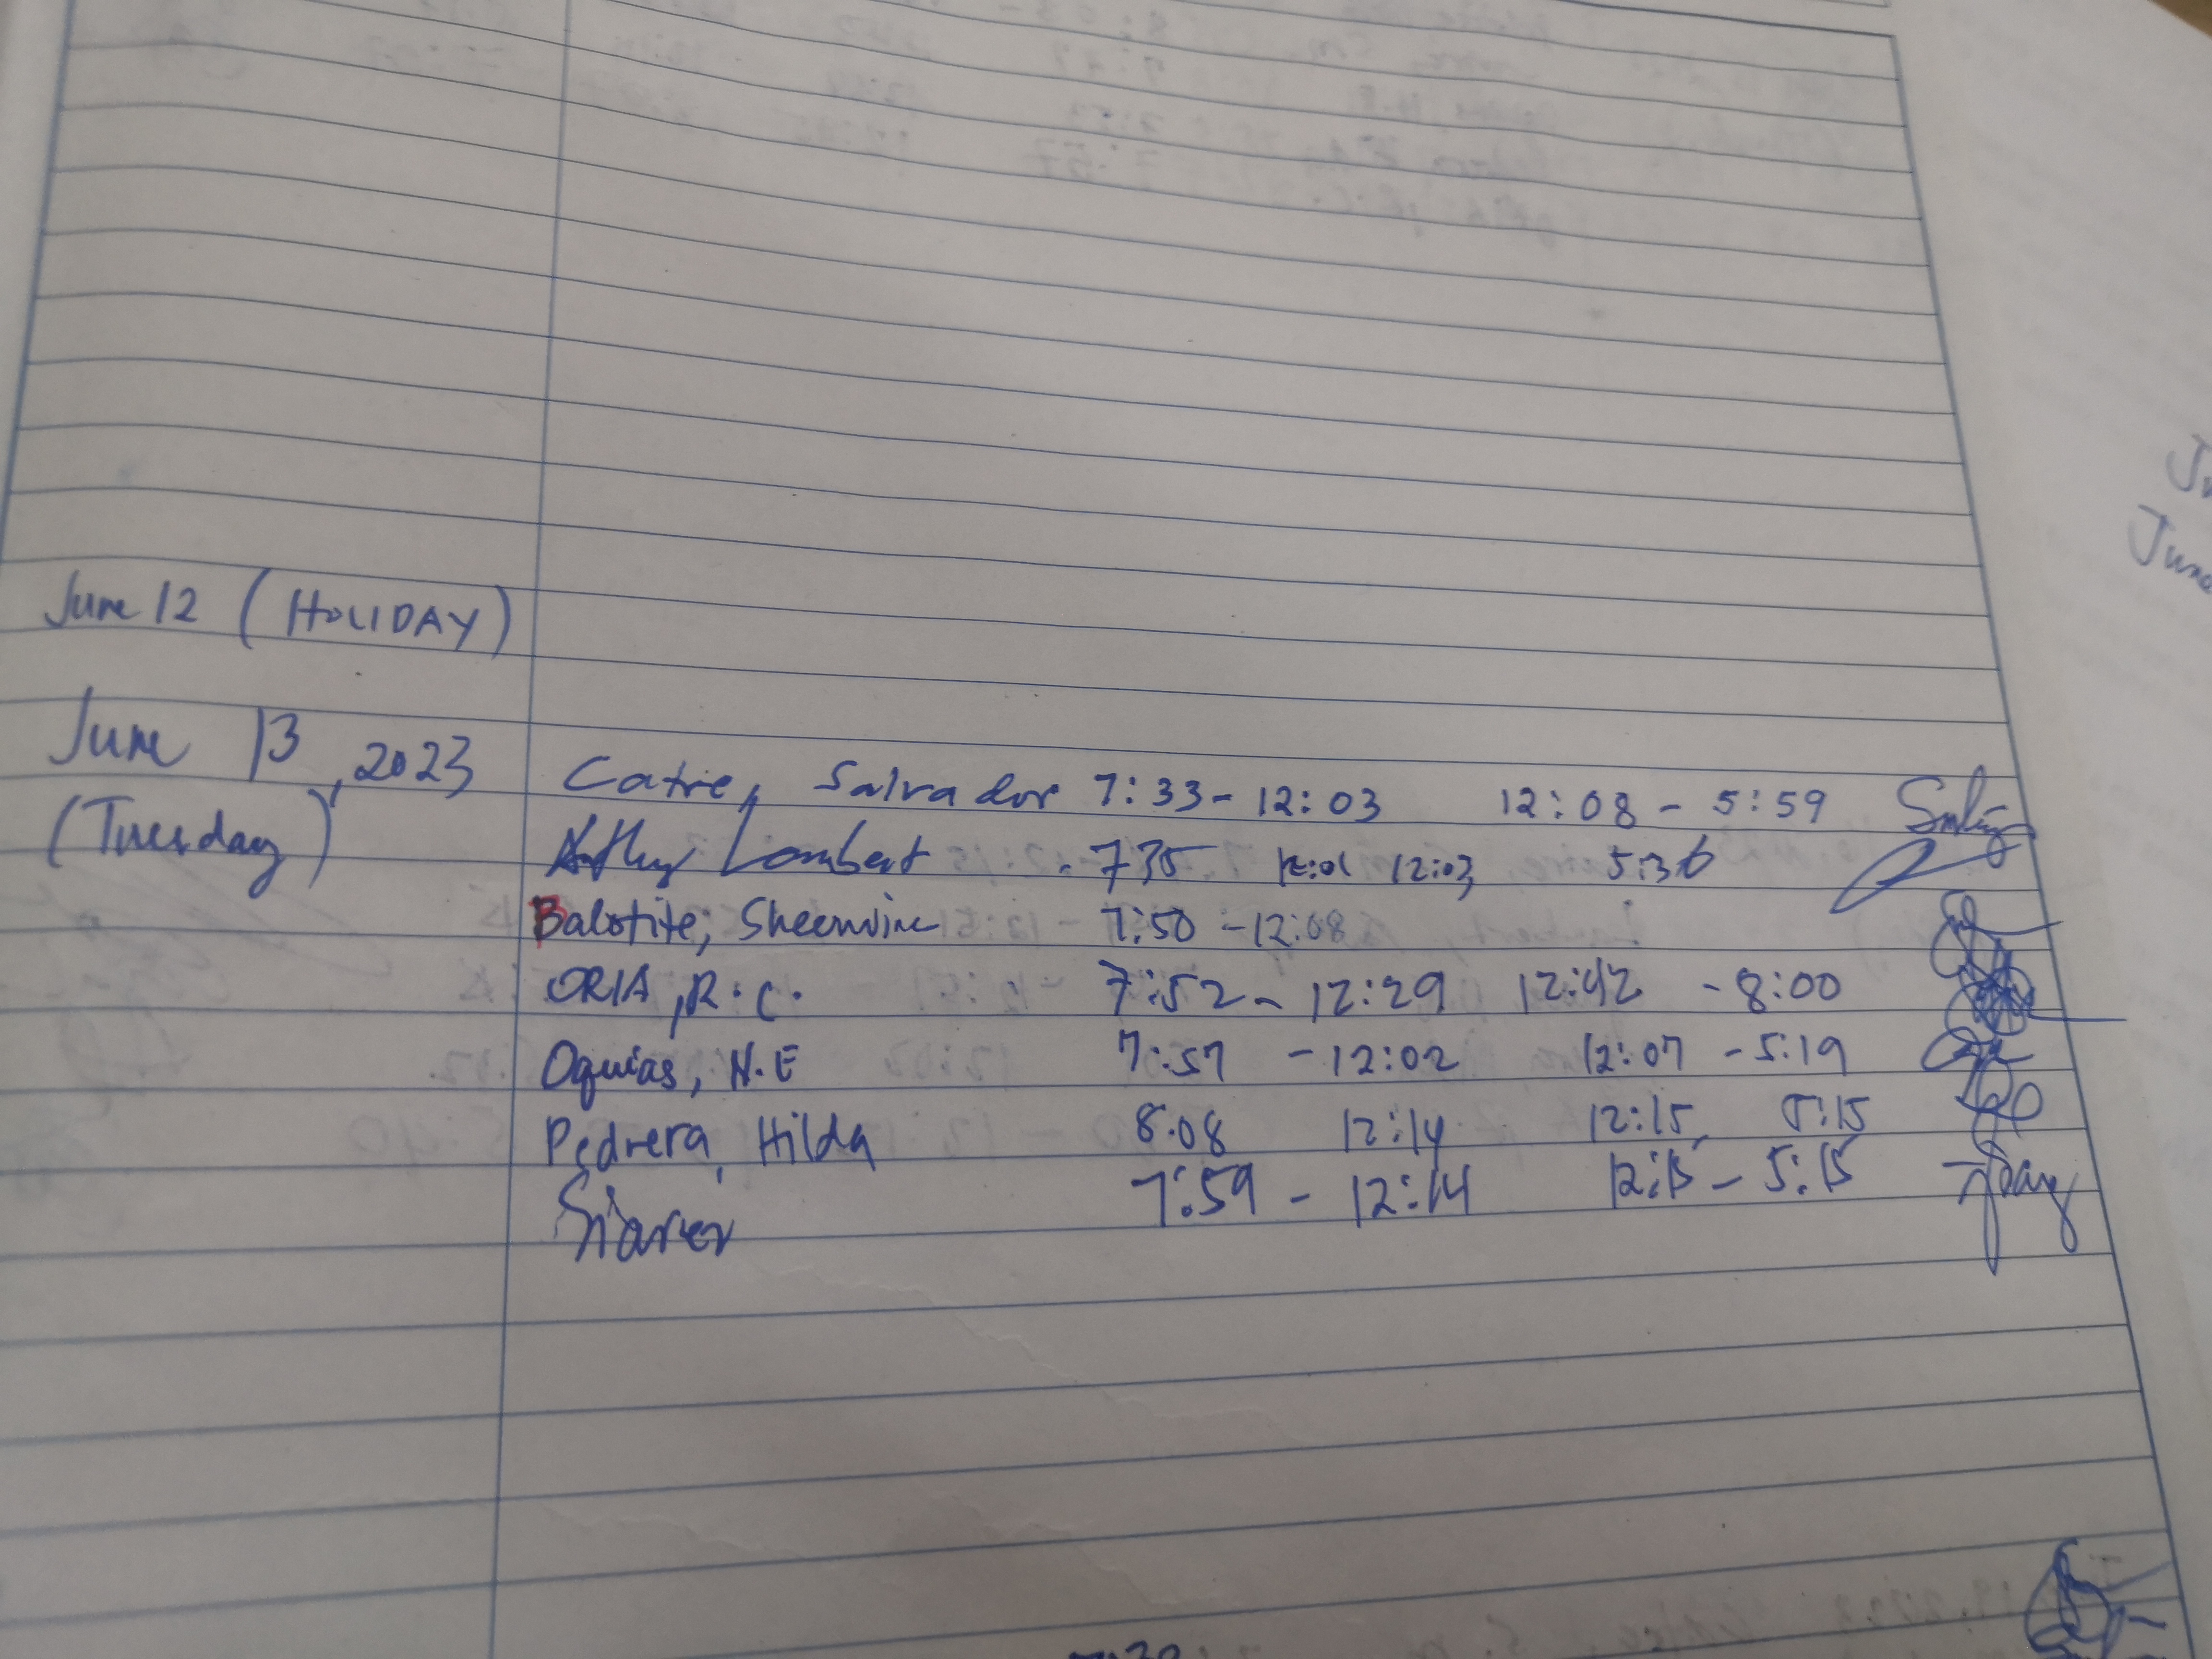 June 12 (HOLIDAY)
June 13, 2023
(Tuesday)
Catre, Salvador 7:33 - 12:03 12:08 - 5:59
Lambert - 735 12:01 12:03 5:36
Balotite, Sheenvine 7:50 - 12:08
ORIA, R.C. 7:52 - 12:29 12:42 - 8:00
Oquias, N.E 7:57 - 12:02 12:07 - 5:19
Pedrera, Hilda 8:08 12:14 12:15 5:15
7:59 - 12:14 12:15 - 5:15
June